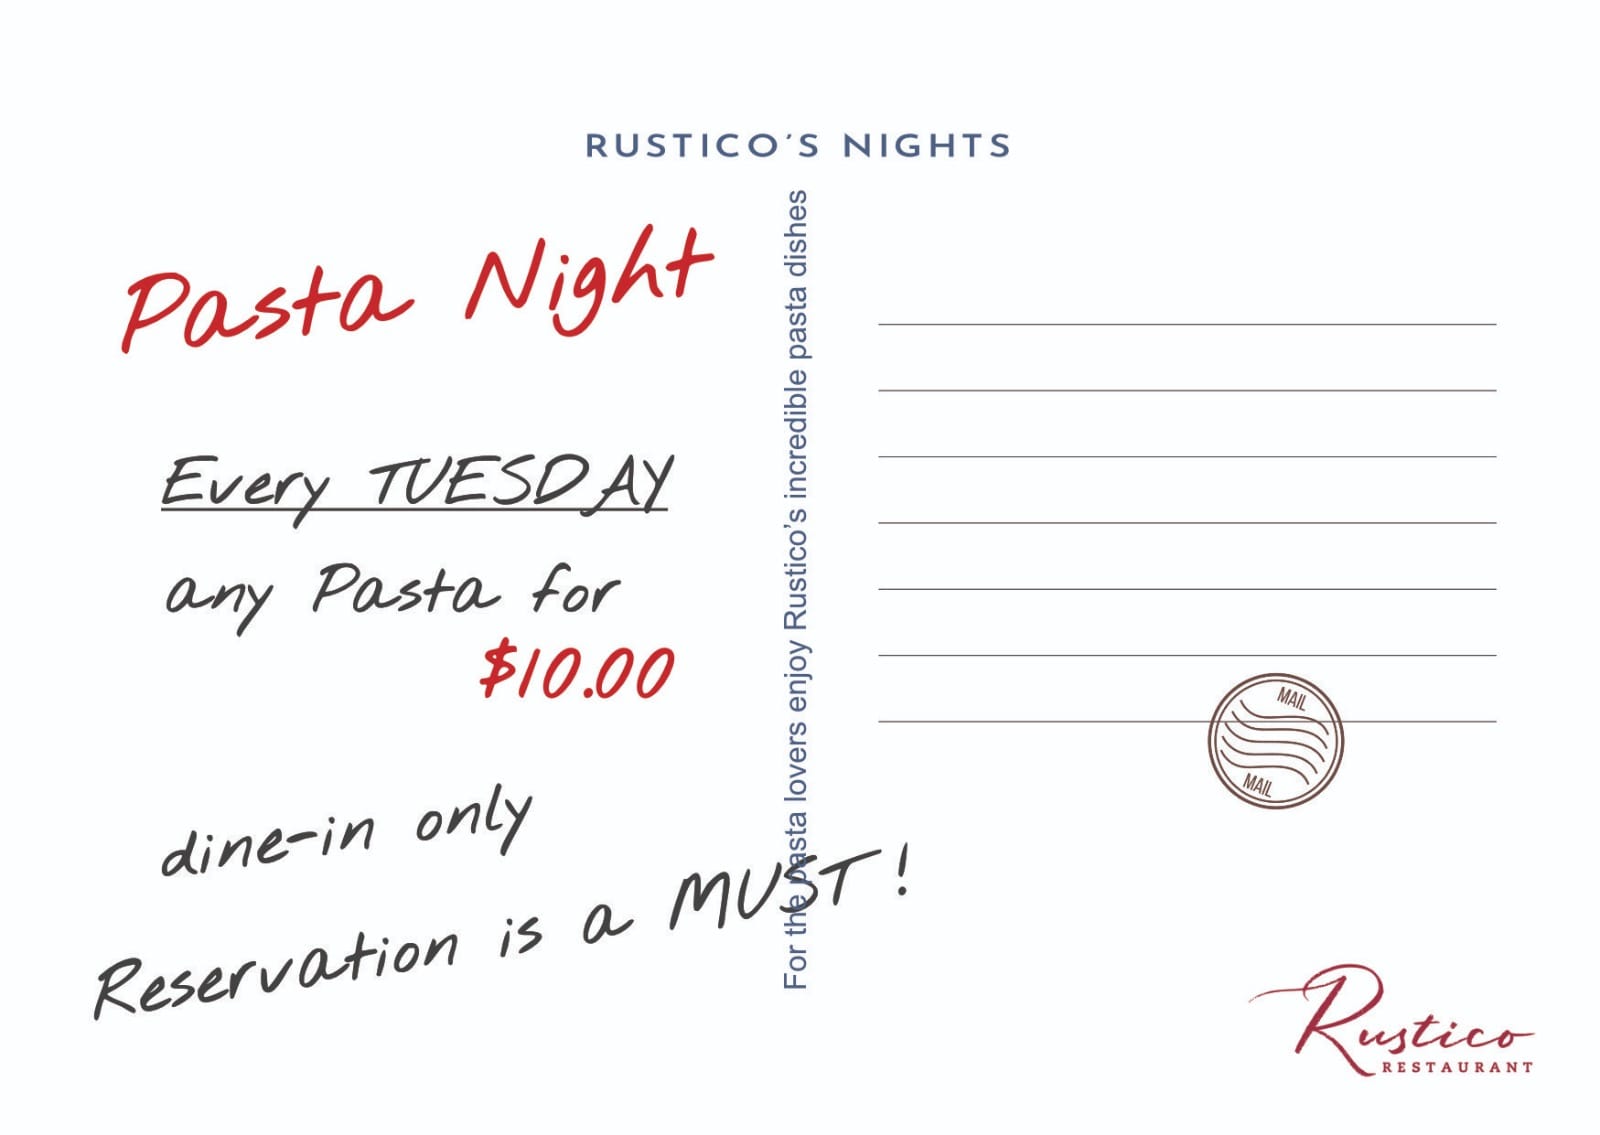 RUSTICO'S NIGHTS
Pasta Night
Every TUESDAY
any Pasta for
$10.00
dine-in only
Reservation is a MUST!
For the pasta lovers enjoy Rustico's incredible pasta dishes
MAIL
MAIL
Rustico
RESTAURANT